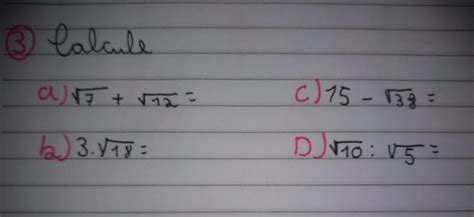 ③ Calcule
a) √7 + √12 =
c) 15 - √38 =
b) 3.√18 =
D) √10 : √5 =